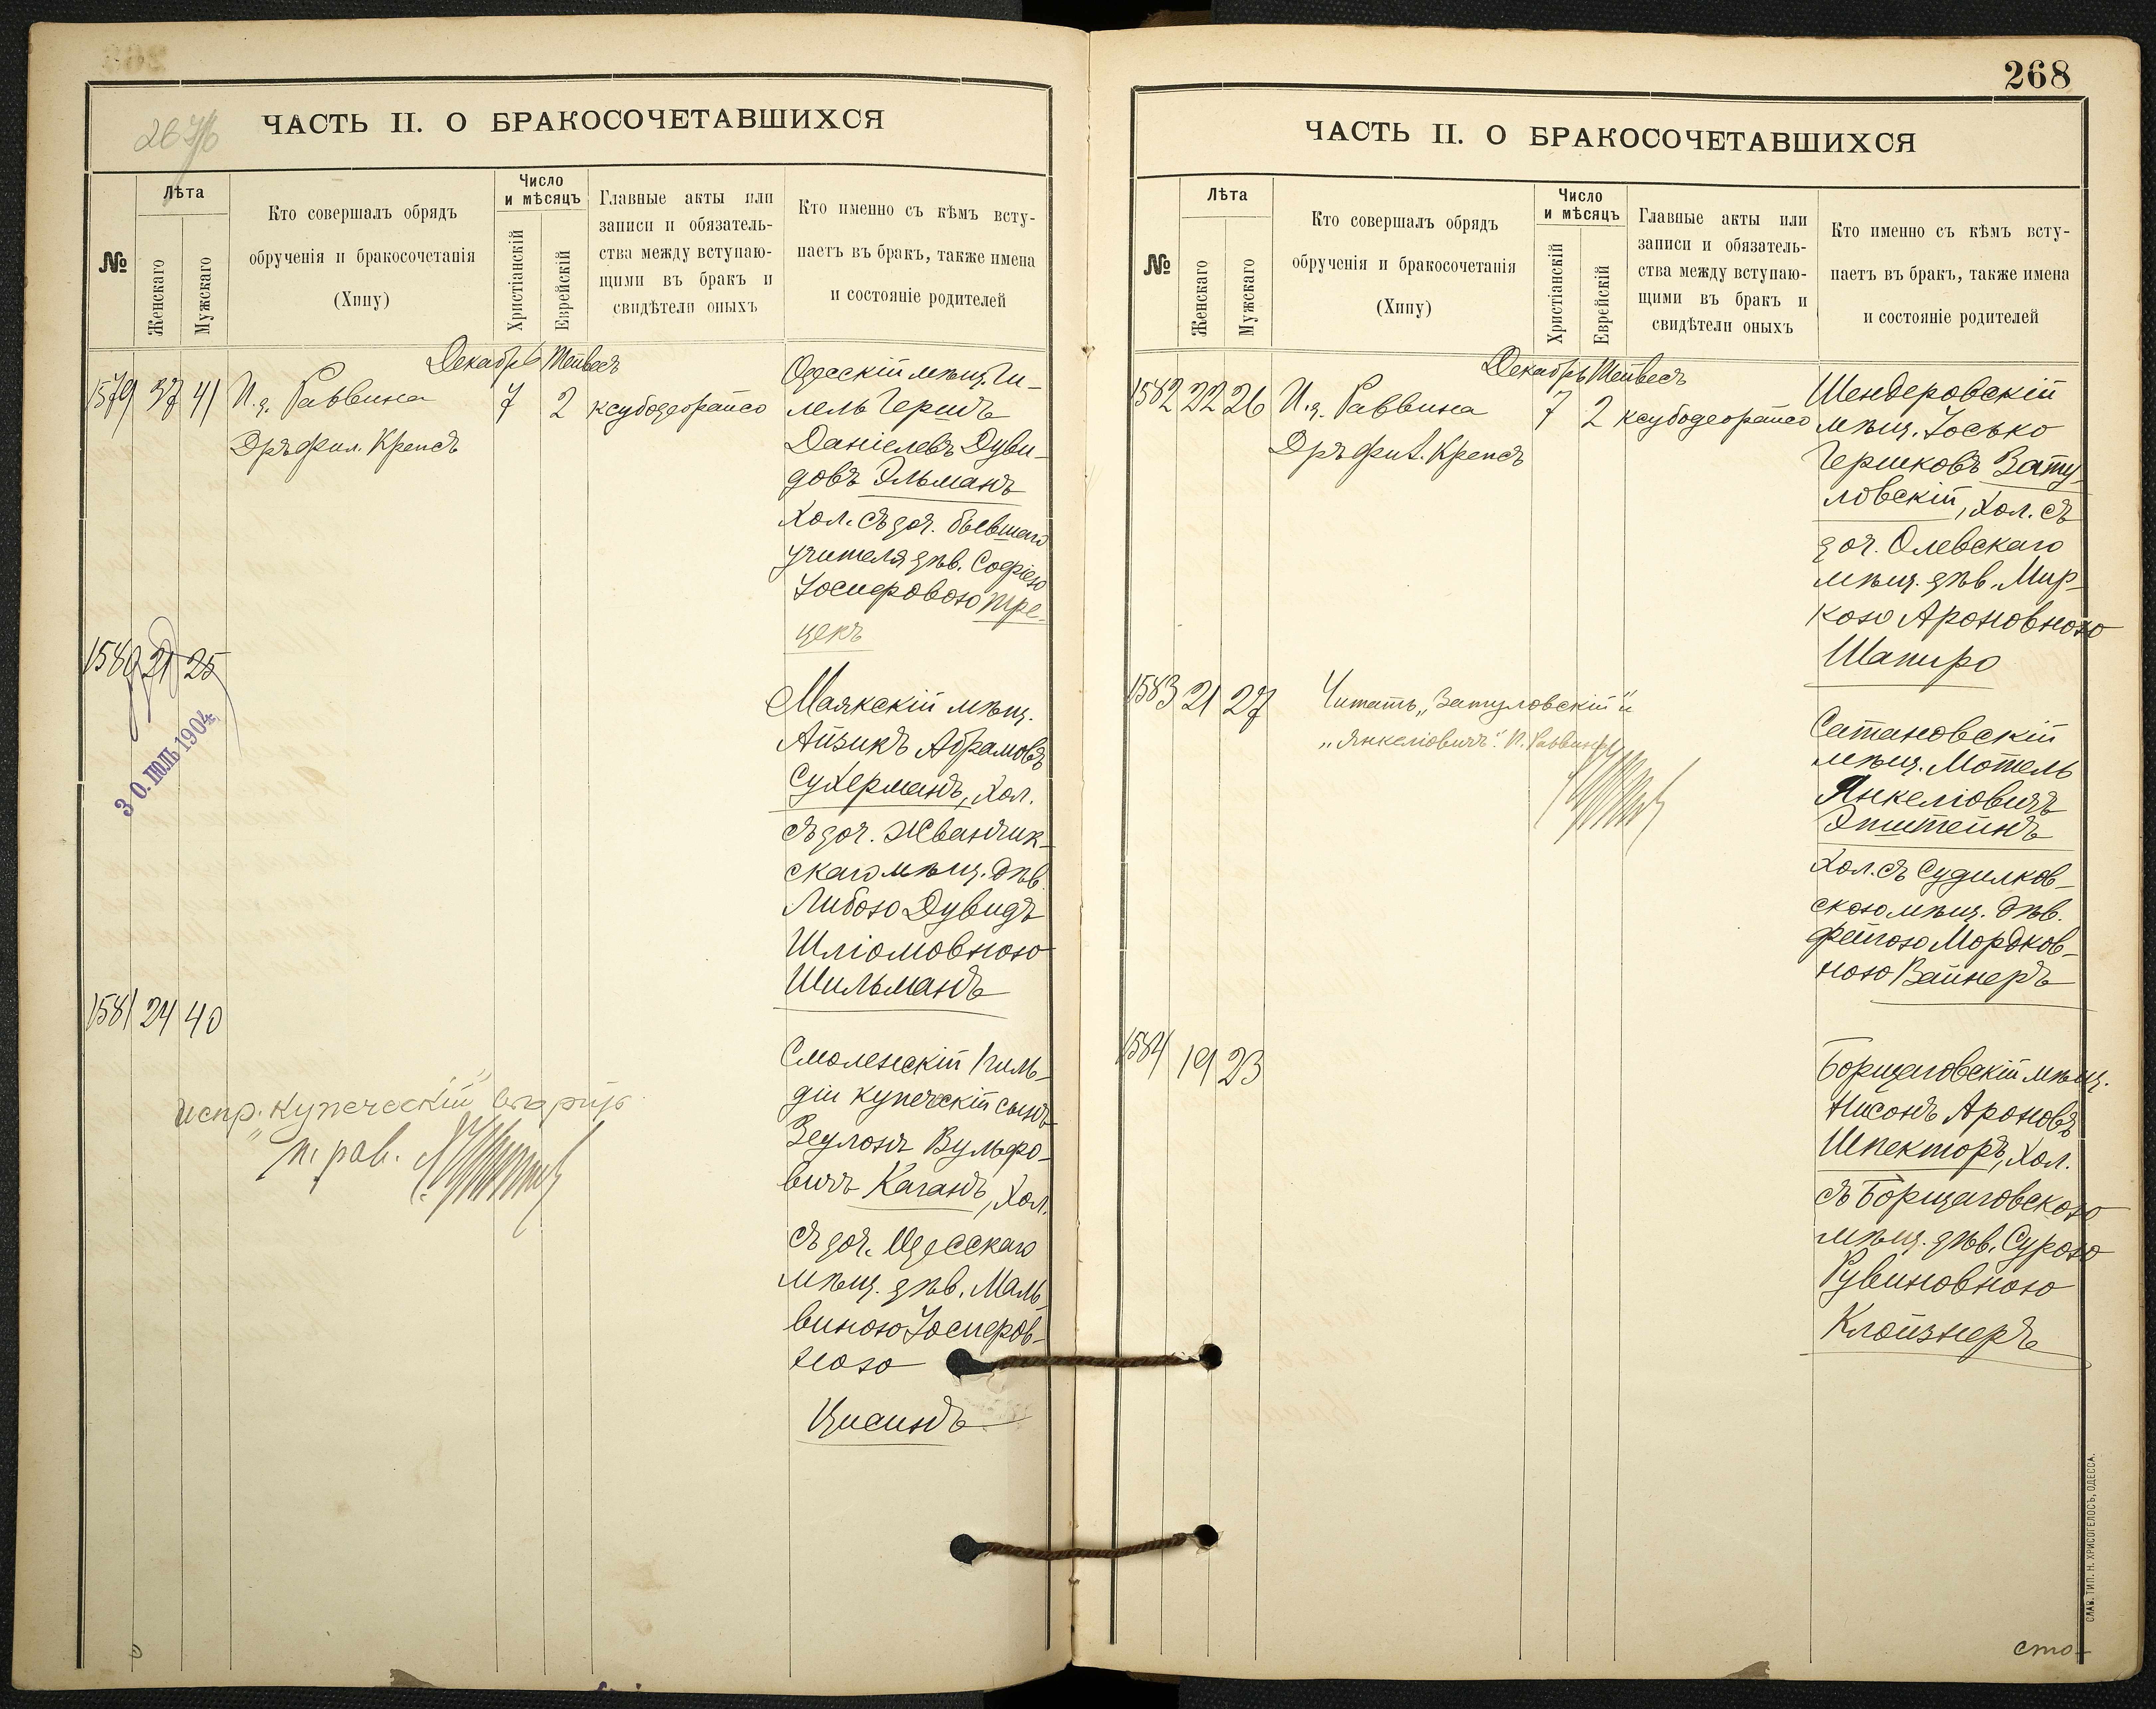 267/б
ЧАСТЬ II. О БРАКОСОЧЕТАВШИХСЯ
№
Лѣта
Женскаго
Мужскаго
Кто совершалъ обрядъ
обрученія и бракосочетанія
(Хипу)
Число
и мѣсяцъ
Христіанскій
Еврейскій
Главные акты или
записи и обязатель-
ства между вступаю-
щими въ бракъ и
свидѣтели оныхъ
Кто именно съ кѣмъ всту-
паетъ въ бракъ, также имена
и состояніе родителей
Декабрь Тейвесъ
1579 37 41 И.д. Раввина 7 2 ксубодеорайсо
Дръ фил. Крепсъ
Одесскій мѣщ. Ги-
лель Гершъ
Даніелевъ Дуви-
довъ Эльманъ
хол. съ доч. бывшаго
учителя дѣв. Софіею
Іосифовою Тре-
цекъ
1580 21 25
30. ІЮЛЬ 1904
Маякскій мѣщ.
Айзикъ Абрамовъ
Сухерманъ, хол.
съ доч. Жванчик-
скаго мѣщ. дѣв.
Либою Дувидъ
Шліомовною
Шильманъ
1581 24 40
испр. "купеческій" вѣрно
п. рав.
Смоленскій 1 гиль-
діи купеческій сынъ
Зеулонъ Вульфо-
вичъ Каганъ, хол.
съ доч. Одесскаго
мѣщ. дѣв. Маль-
виною Іосифов-
ною
Цисинъ
268
ЧАСТЬ II. О БРАКОСОЧЕТАВШИХСЯ
№
Лѣта
Женскаго
Мужскаго
Кто совершалъ обрядъ
обрученія и бракосочетанія
(Хипу)
Число
и мѣсяцъ
Христіанскій
Еврейскій
Главные акты или
записи и обязатель-
ства между вступаю-
щими въ бракъ и
свидѣтели оныхъ
Кто именно съ кѣмъ всту-
паетъ въ бракъ, также имена
и состояніе родителей
Декабрь Тейвесъ
1582 22 26 И.д. Раввина 7 2 ксубодеорайсо
Дръ фил. Крепсъ
Шендеровскій
мѣщ. Іосько
Гершковъ Зату-
ловскій, хол. съ
доч. Олевскаго
мѣщ. дѣв. Мир-
кою Ароновною
Шапиро
1583 21 27
Читать „Затуловскій" и
„Янкеліовичъ". П. Раввинъ
Сатановскій
мѣщ. Мотель
Янкеліовичъ
Эпштейнъ
хол. съ Судилков-
скою мѣщ. дѣв.
Фейгою Мордков-
ною Вайнеръ
1584 19 23
Борщаговскій мѣщ.
Нисонъ Ароновъ
Шпекторъ, хол.
съ Борщаговскою
мѣщ. дѣв. Сурою
Рувиновною
Клойзнеръ
СЛАВ. ТИП. Н. ХРИСОГЕЛОСЪ, ОДЕССА.
сто-